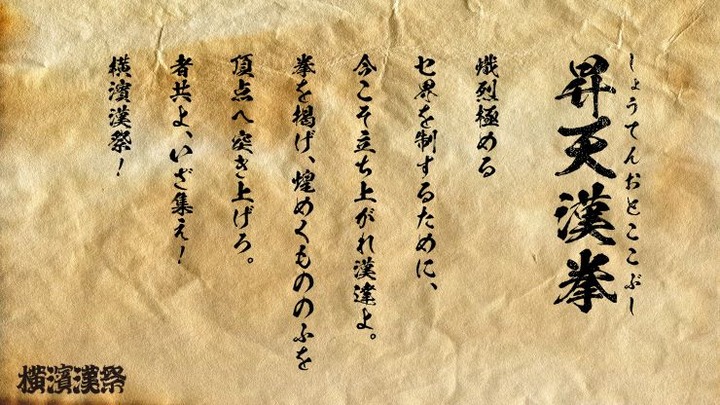 昇天漢拳
しょうてんおとここぶし
熾烈極める
セ界を制するために、
今こそ立ち上がれ漢達よ。
拳を掲げ、煌めくもののふを
頂点へ突き上げろ。
者共よ、いざ集え！
横濱漢祭！
横濱漢祭